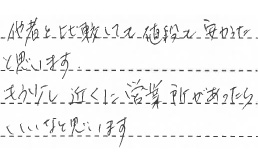 他者と比較しても値段も安かった
と思います.
もう少し近くに営業所があったら
いいなと思います